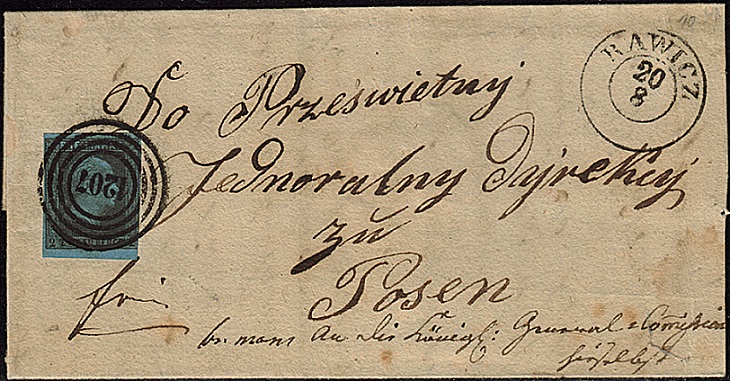 RAWICZ
20
8
1207
Do Prześwietny
Jedneralny Dÿrekcÿi
zu
Posen
An die Königl: General-Commission
hierselbst